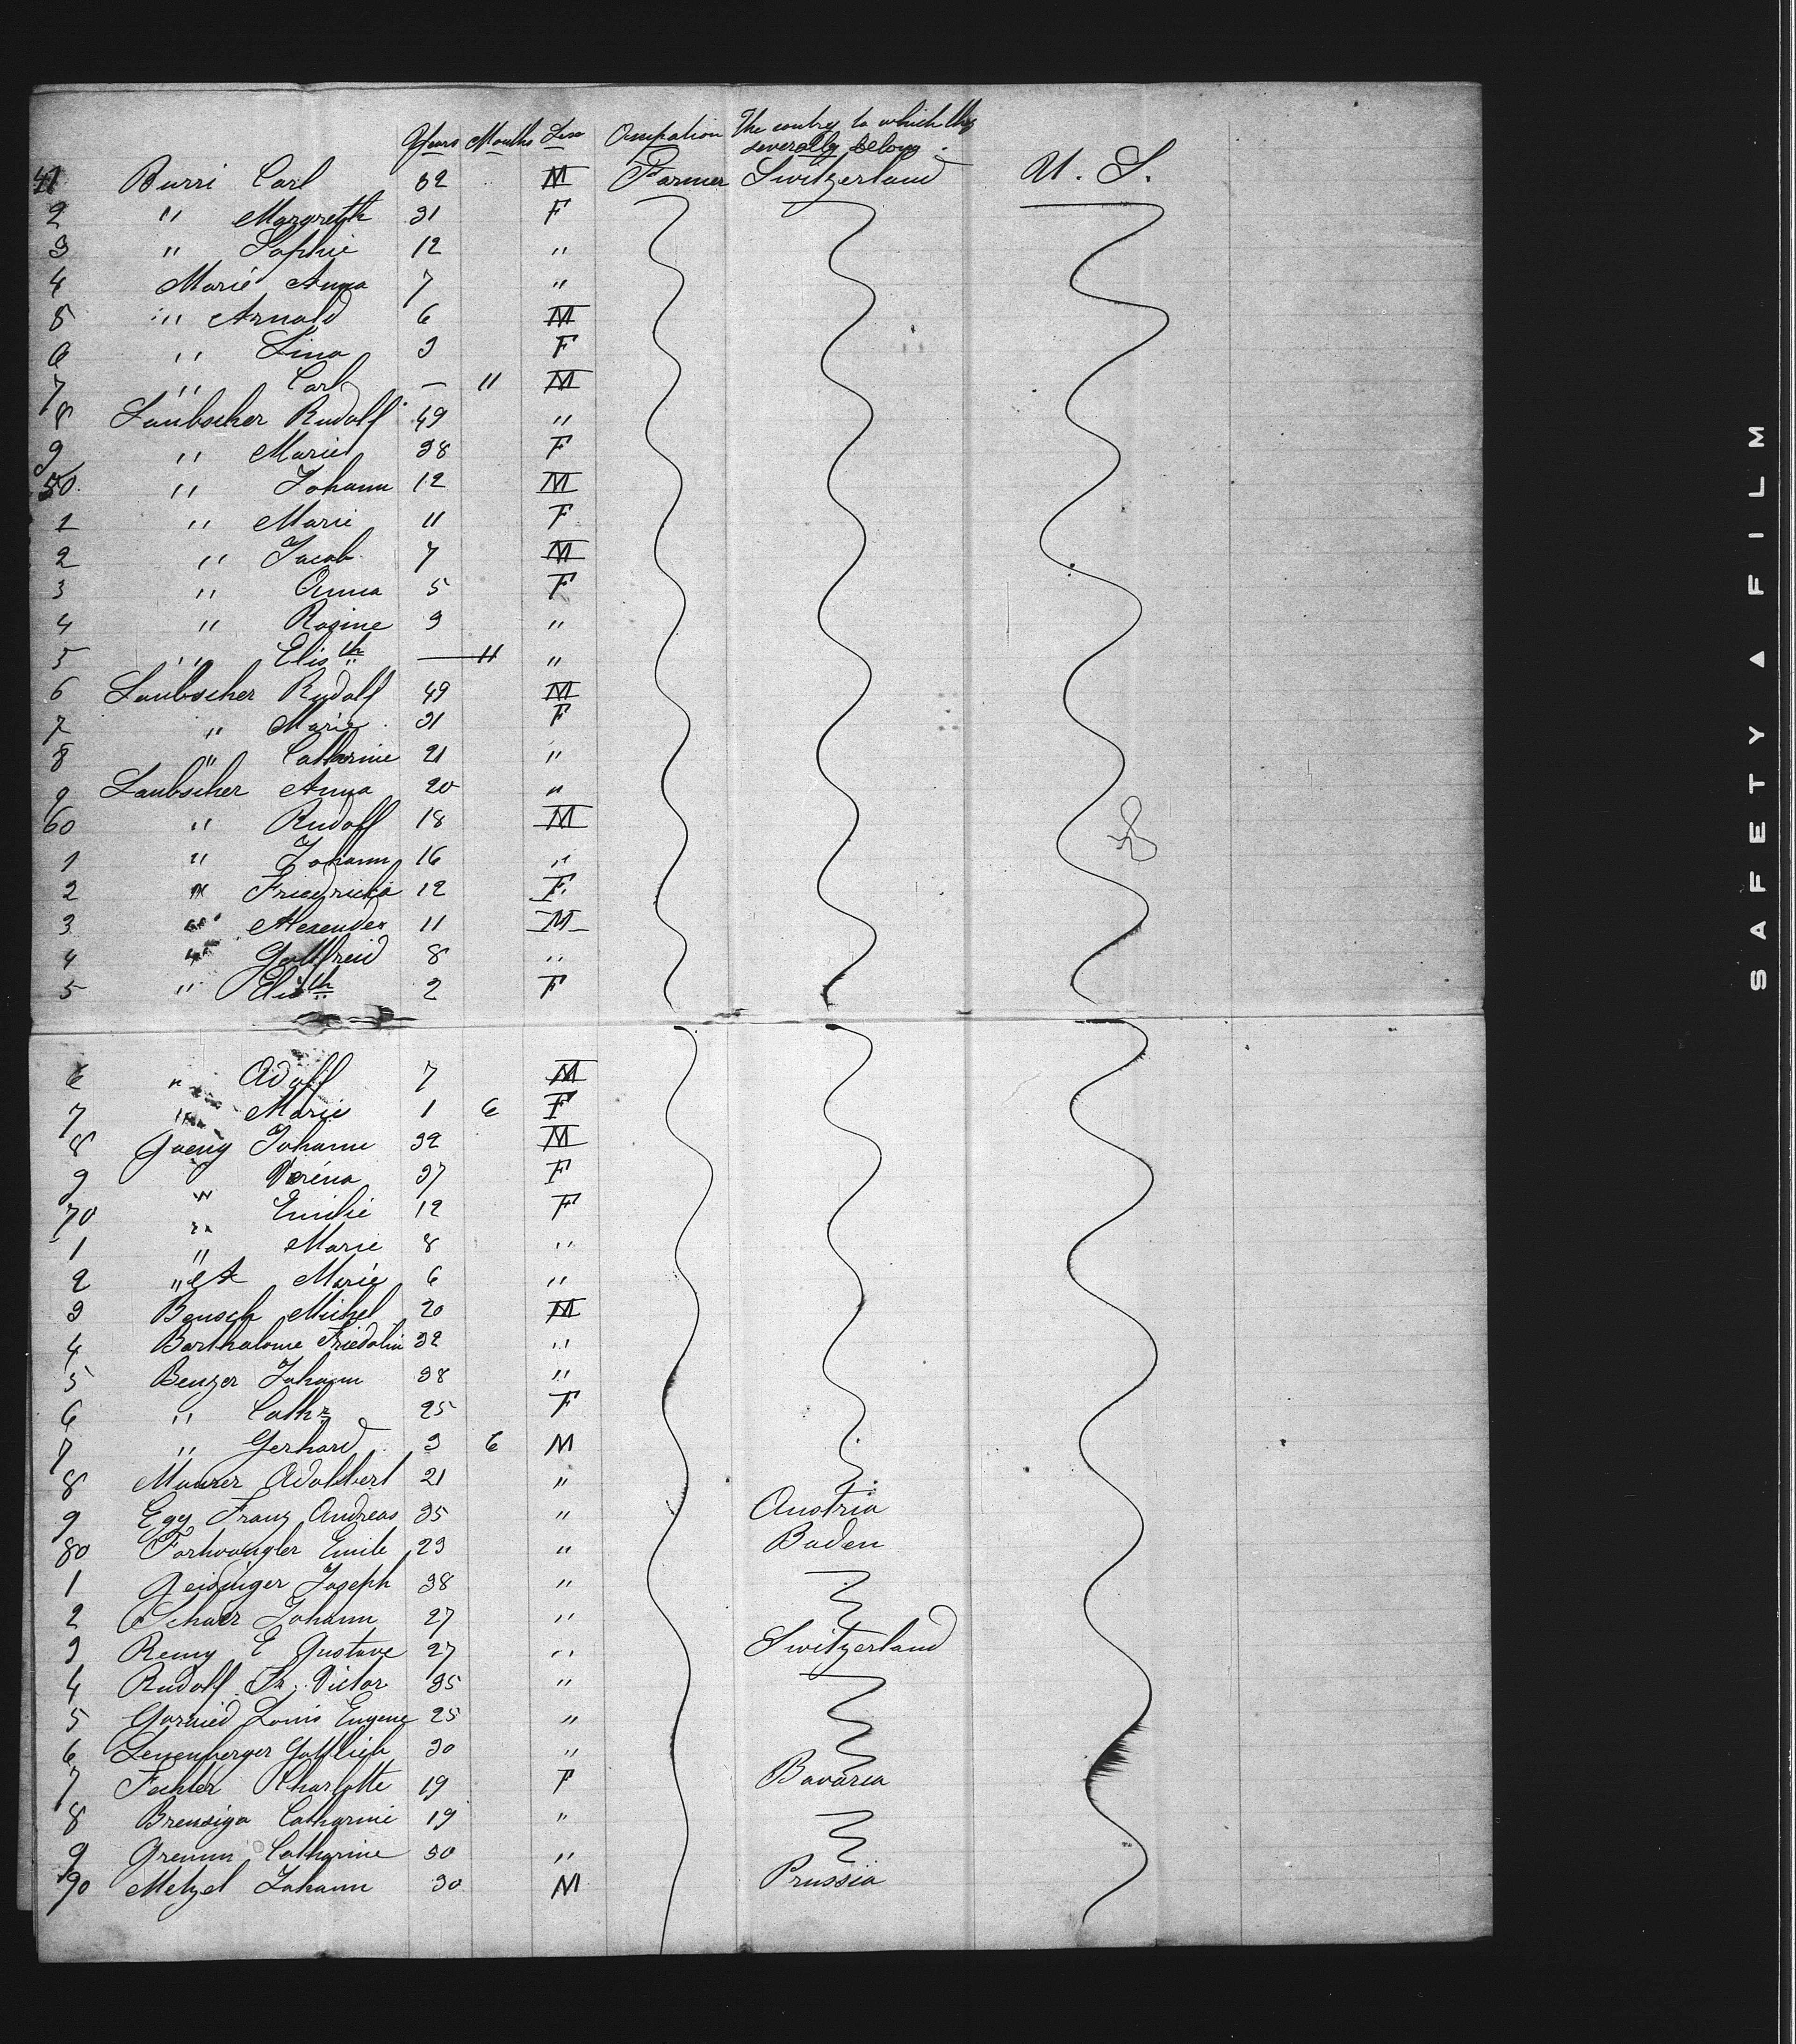 Years Months Sex Occupation The contrey to which they
severally belong.
41 Burri Carl 32 M Farmer Switzerland U. S.
2 " Margreth 31 F
3 " Sophie 12 "
4 Marie Anna 7 "
5 " Arnold 6 M
6 " Lina 3 F
7 " Carl — 11 M
8 Laubscher Rudolf 49 "
9 " Marie 38 F
50. " Johann 12 M
1 " Marie 11 F
2 " Jacob 7 M
3 " Anna 5 F
4 " Rosine 3 "
5 " Elisth — 11 "
6 Laubscher Rudolf 49 M
7 " Marie 31 F
8 " Catharine 21 "
9 Laubscher Anna 20 "
60 " Rudolf 18 M
1 " Johann 16 "
2 " Friedricka 12 F
3 " Alexender 11 M
4 " Gottfreid 8 "
5 " Elisth 2 F
6 " Adolf 7 M
7 " Marie 1 6 F
8 Johann 32 M
9 " Verena 37 F
70 " Emilie 12 F
1 " Marie 8 "
2 " A Marie 6 "
3 Bensch Michel 20 M
4 Bartholome Friedolin 32 "
5 Benzer Johann 38 "
6 " Cath 25 F
7 " Gerhard 3 6 M
8 Maurer Adalbert 21 "
9 Egg Franz Andreas 35 " Austria
80 Forhwangler Emile 23 " Baden
1 Geisinger Joseph 38 "
2 Schaer Johann 27 "
3 Remy E Gustave 27 " Switzerland
4 Rudolf Victor 35 "
5 Louis Eugene 25 "
6 Leuenberger Gottlieb 30 "
7 Fechter Charlotte 19 F Bavaria
8 Catharine 19 "
9 Catharine 30 "
90 Metzel Johann 30 M Prussia
SAFETY ▲ FILM